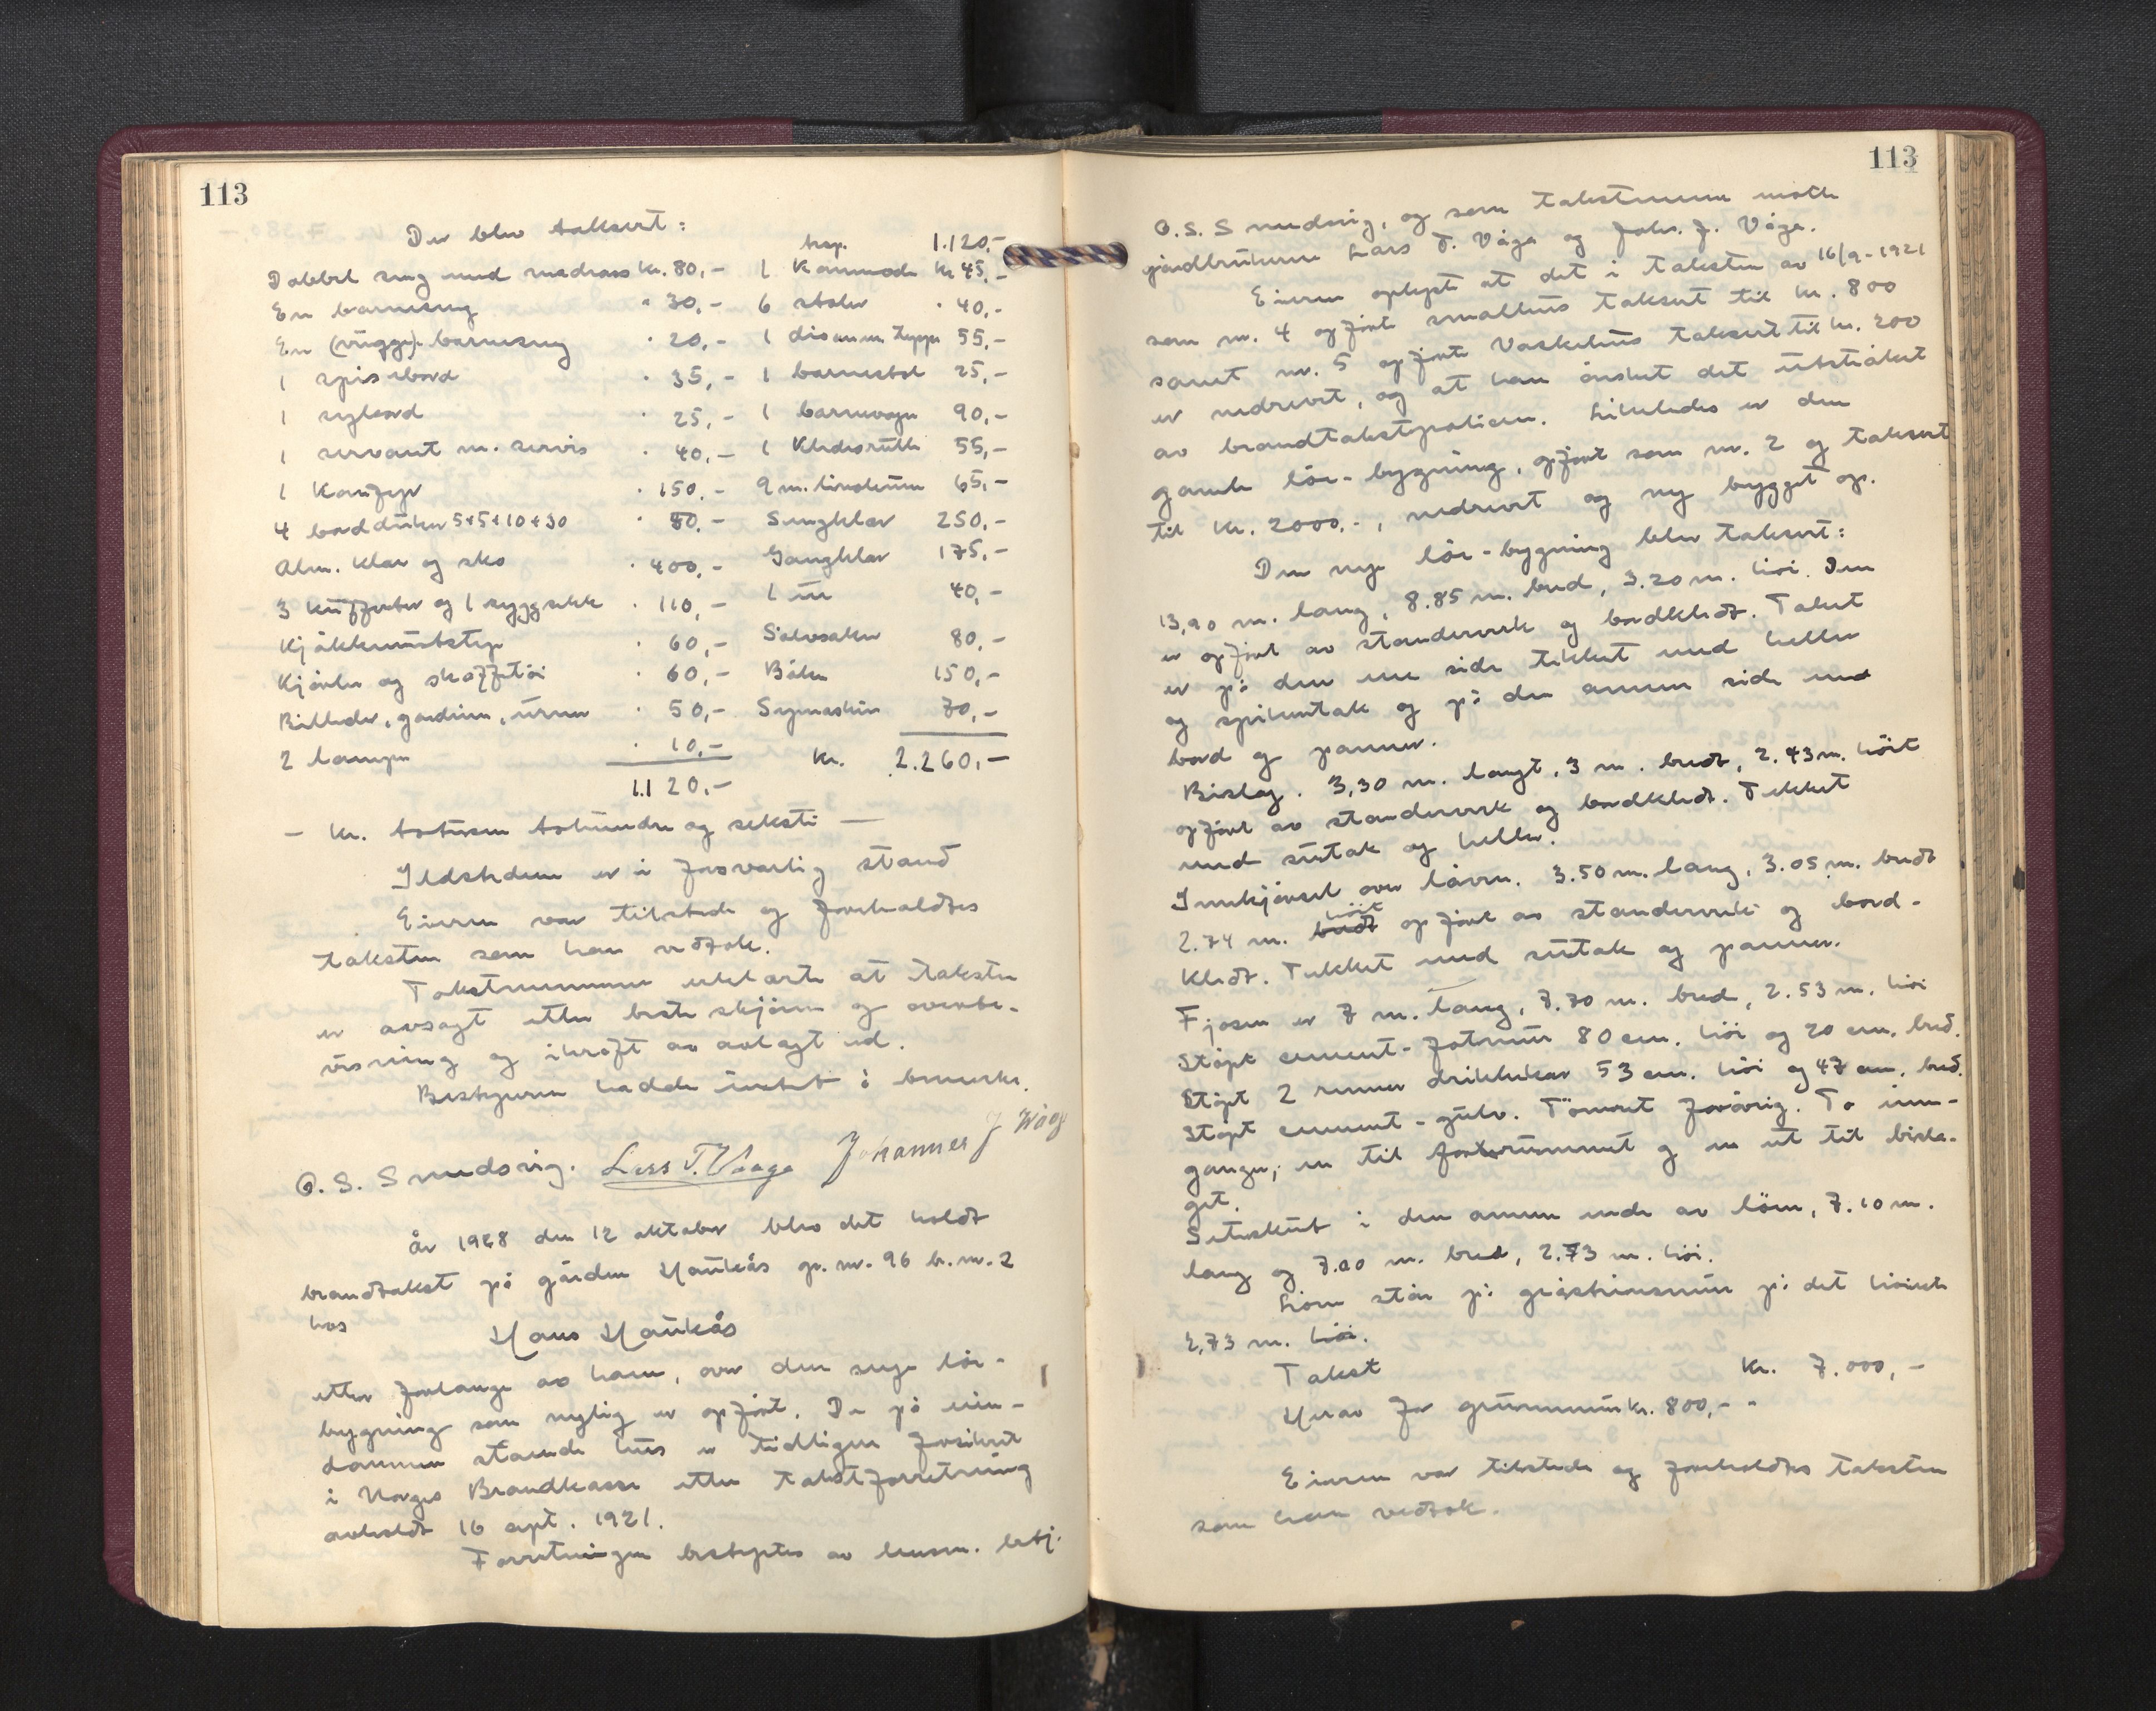 113
Der blev taksert:
Dobbel seng med madrass kr. 80,-
En barneseng " 30,-
En (vugge) barneseng " 20,-
1 spisebord " 35,-
1 sybord " 25,-
1 servant m. servis " 40,-
1 Komfyr " 150,-
4 bordduker 5+5+10+30 " 50,-
Alm. klær og sko " 400,-
3 kufferter og 1 ryggsekk " 110,-
Kjøkkenutstyr " 60,-
Kjørler og skaffetøi " 60,-
Billeder, gardiner, urner " 50,-
2 lamper " 10,-
1.120,-
trsp. 1.120,-
1 Kommode kr 45,-
6 stoler " 40,-
1 divan m. teppe 55,-
1 barnestol 25,-
1 barnevogn 90,-
1 Klesrulle 55,-
9 m. linoleum 65,-
Sengklær 250,-
Gangklær 175,-
1 ur 40,-
Sølvsaker 80,-
Bøker 150,-
Symaskin 70,-
Kr. 2.260,-
- kr. totusen tohundre og seksti -
Ildstedene er i forsvarlig stand
Eieren var tilstede og foreholdtes
taksten som han vedtok.
Takstmennene erklærte at taksten
er avsagt etter beste skjønn og overbe-
visning og ikraft av avlagt ed.
Bestyreren hadde intet å bemerke.
O. S. Smedsvig. Lars T. Vaage Johannes J Våge
År 1928 den 12 oktober blev det holdt
brandtakst på gården Haukås gr. nr. 96 br. nr. 2
hos
Hans Haukås
etter forlangende av ham, over den nye løe-
bygning som nylig er opført. De på eien-
dommen stående hus er tidligere forsikret
i Norges Brandkasse etter takstforretning
avholdt 16 sept. 1921.
Forretningen bestyrtes av lensm. betj.
113
O. S. Smedsvig, og som takstmenn møtte
gårdbrukerne Lars T. Våge og Johs. J. Våge.
Eieren oplyste at det i taksten av 16/9-1921
som nr. 4 opførte smalhus taksert til kr. 800
samt nr. 5 opførte Vaskehus taksert til kr. 200
er nedrevet, og at han ønsket det utstrøket
av brandtakstpolicen. Likeledes er den
gamle løe-bygning, opført som nr. 2 og taksert
til kr. 2000,-, nedrevet og ny bygget op.
Den nye løe-bygning blev taksert:
13,90 m. lang, 8.85 m. bred, 3.20 m. høi. Den
er opført av stenderverk og bordkledt. Taket
er på den ene side tekket med heller
og spikertak og på den annen side med
bord og panner.
Bislag. 3,30 m. langt, 3 m. bredt, 2.43 m. høit
opført av stenderverk og bordkledt. Tekket
med sutak og heller.
Innkjørsel over låven. 3.50 m. lang, 3.05 m. bredt
2.74 m. høit opført av stenderverk og bord-
kledt. Tekket med sutak og panner.
Fjosen er 7 m. lang, 7.70 m. bred, 2.53 m. høi
Støpt cement-fotmur 80 cm. høi og 20 cm. bred.
Støpt 2 renner drikkekar 53 cm. høi og 47 cm. bred.
Støpt cement-gulv. Tømret forøvrig. To inn-
ganger, en til forrummet og en ut til bisla-
get.
Seterskut i den annen ende av løen, 7.10 m.
lang og 7.00 m. bred, 2.73 m. høi.
Løen står på gråstensmur på det høieste
2,73 m. høi.
Takst Kr. 7.000,-
Herav for grunnmur kr. 800,-
Eieren var tilstede og foreholdtes taksten
som han vedtok.